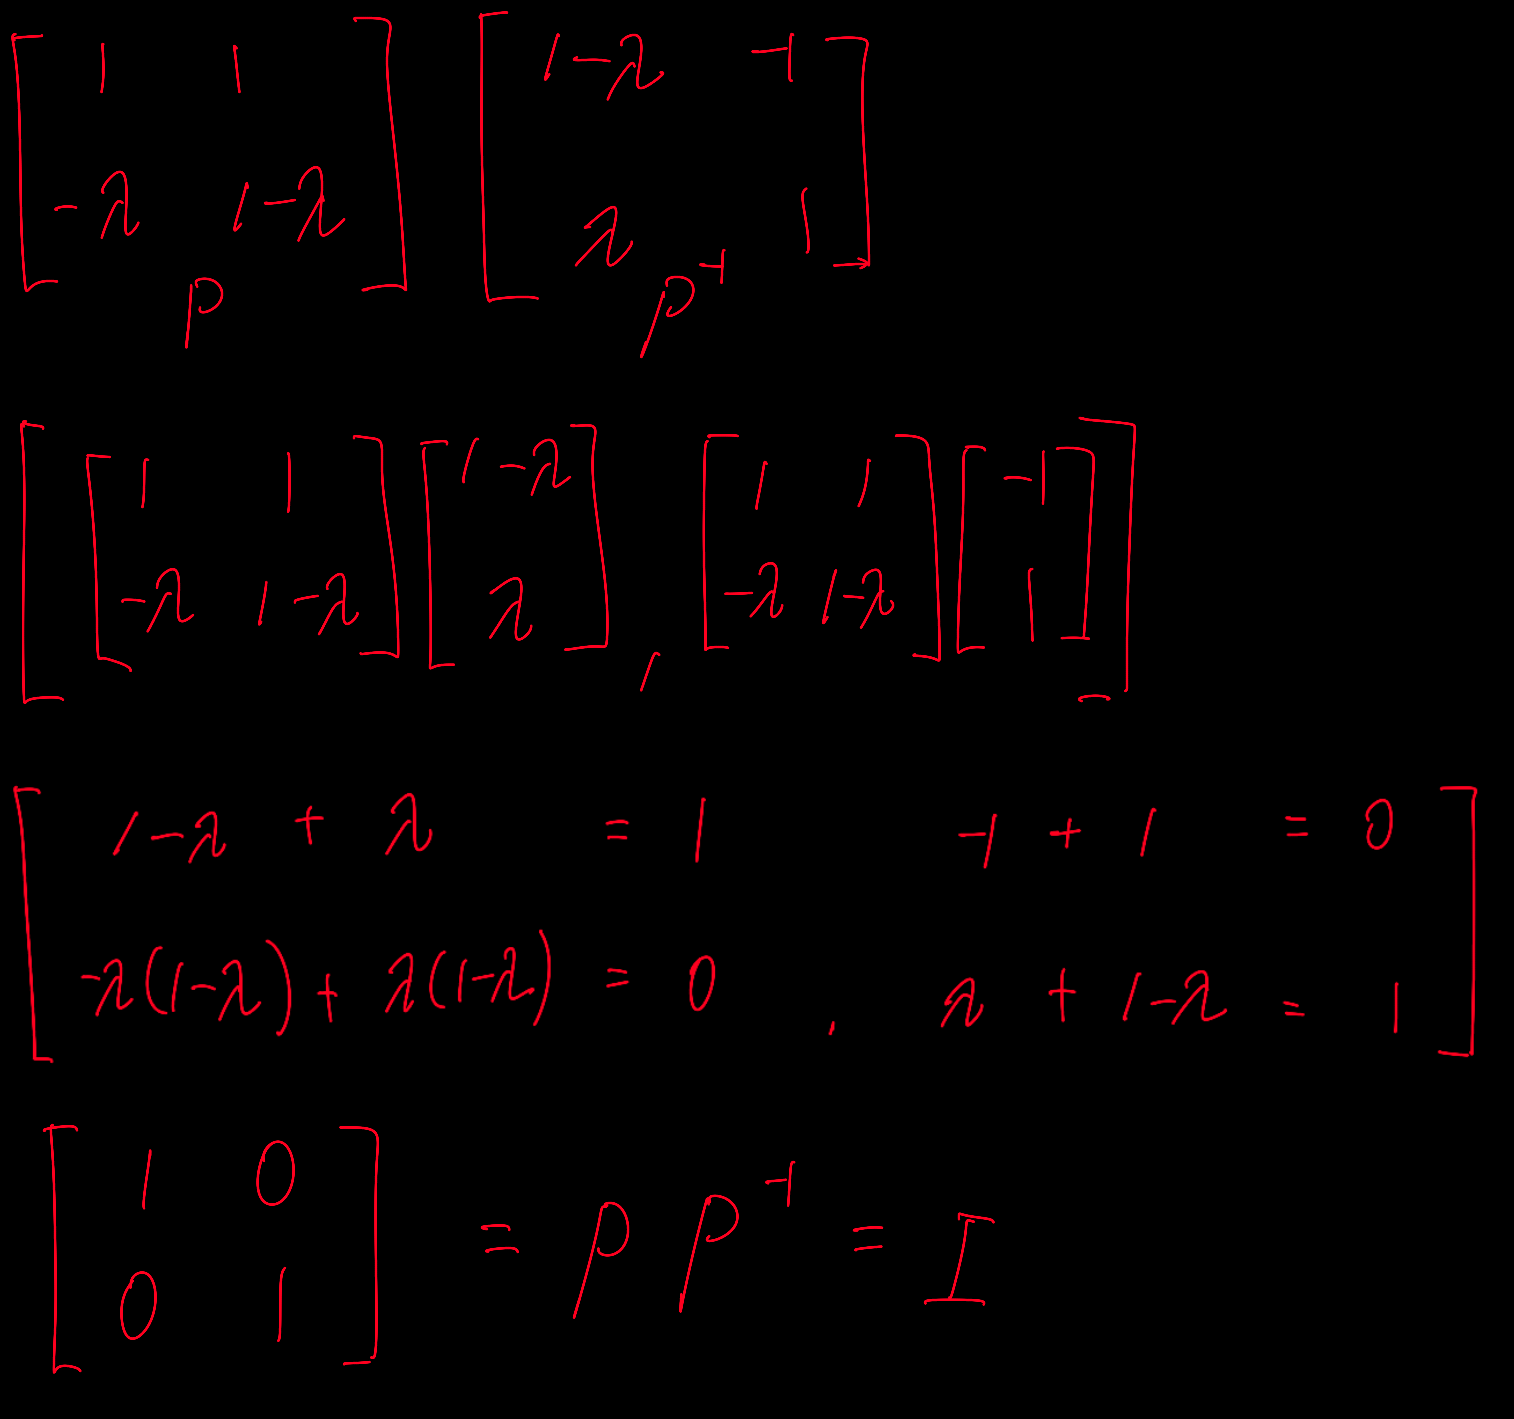 [ 1 1 ] [ 1-λ -1 ]
[ -λ 1-λ ] [ λ 1 ]
P P⁻¹
[ [ 1 1 ] [ 1-λ ] [ 1 1 ] [ -1 ] ]
[ [ -λ 1-λ ] [ λ ] , [ -λ 1-λ ] [ 1 ] ]
[ 1-λ + λ = 1 -1 + 1 = 0 ]
[ -λ(1-λ) + λ(1-λ) = 0 , λ + 1-λ = 1 ]
[ 1 0 ]
[ 0 1 ] = P P⁻¹ = I